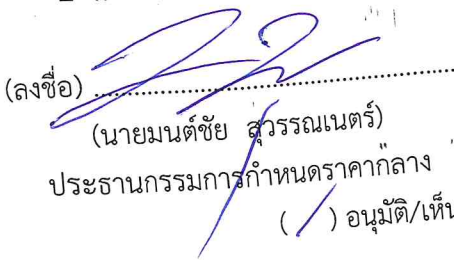 (ลงชื่อ) ..................................................
(นายมนต์ชัย สุวรรณเนตร์)
ประธานกรรมการกำหนดราคากลาง
( / ) อนุมัติ/เห็น